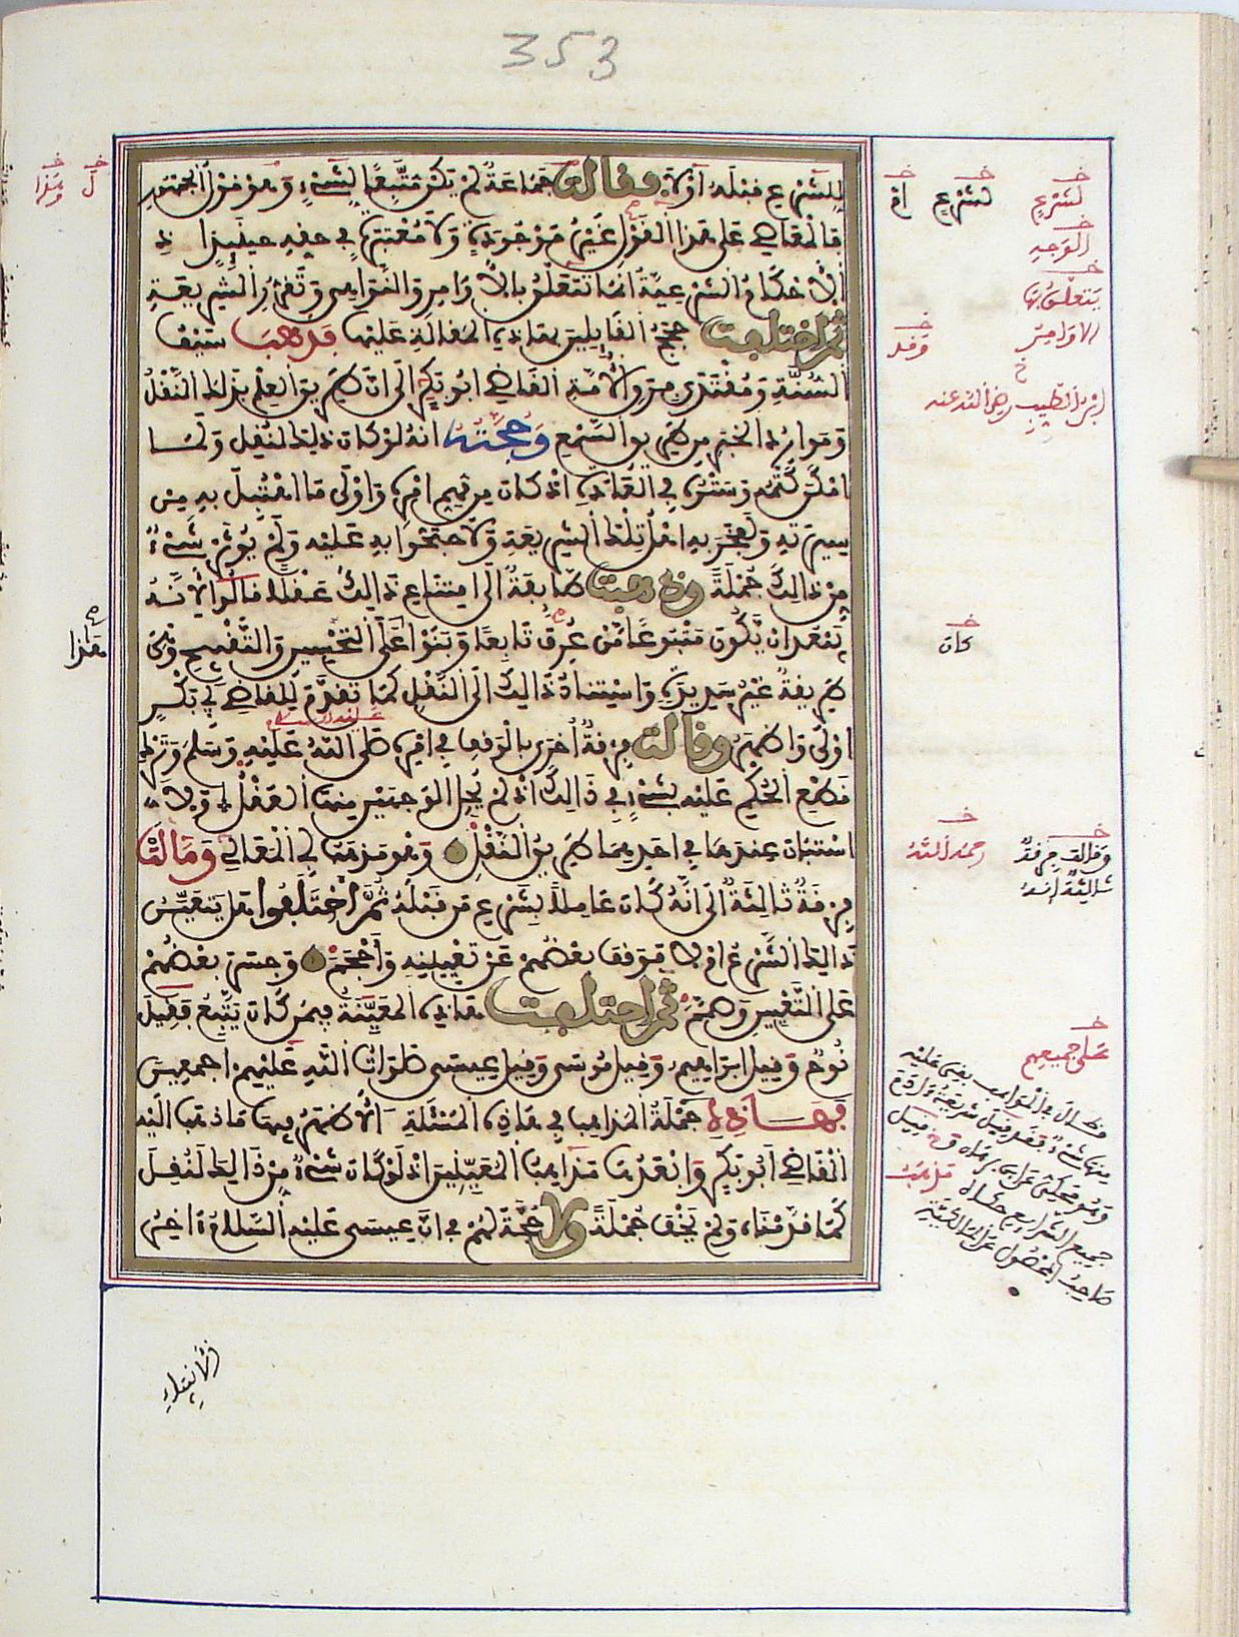 353
لِلشَّرْعِ قَبْلَهُ أَوْ لَا وَقَالَتْ جَمَاعَةٌ لَمْ يَكُنْ مُتَّبِعًا لِشَيْءٍ وَهُوَ قَوْلُ الْجُمْهُورِ
فَالْمَعَاصِي عَلَى هَذَا الْقَوْلِ غَيْرُ مَوْجُودَةٍ وَلَا مُعْتَبَرَةٍ فِي حَقِّهِ حِينَئِذٍ إِذِ
الْأَحْكَامُ الشَّرْعِيَّةُ إِنَّمَا تَتَعَلَّقُ بِالْأَوَامِرِ وَالنَّوَاهِي وَتَقَرُّرِ الشَّرِيعَةِ
ثُمَّ اخْتَلَفَتْ حُجَجُ الْقَائِلِينَ بِهَذِهِ الْمَقَالَةِ عَلَيْهَا فَذَهَبَ سَيْفُ
السُّنَّةِ وَمُقْتَدَى فِرَقِ الْأُمَّةِ الْقَاضِي أَبُو بَكْرٍ إِلَى أَنَّ طَرِيقَ الْعِلْمِ بِذَلِكَ النَّقْلُ
وَمَوَارِدُ الْخَبَرِ مِنْ طَرِيقِ السَّمْعِ وَحُجَّتُهُ أَنَّهُ لَوْ كَانَ ذَلِكَ لَنُقِلَ وَلَمَا
أَمْكَنَ كَتْمُهُ وَسَتْرُهُ فِي الْعَادَةِ إِذْ كَانَ مِنْ مُهِمِّ أَمْرِهِ وَأَوْلَى مَا اهْتُبِلَ بِهِ مِنْ
سِيرَتِهِ وَلَفَخَرَ بِهِ أَهْلُ تِلْكَ الشَّرِيعَةِ وَلَاحْتَجُّوا بِهِ عَلَيْهِ وَلَمْ يُؤْثَرْ شَيْءٌ
مِنْ ذَلِكَ جُمْلَةً وَذَهَبَتْ طَائِفَةٌ إِلَى امْتِنَاعِ ذَلِكَ عَقْلًا قَالُوا لِأَنَّهُ
يَبْعُدُ أَنْ يَكُونَ مَتْبُوعًا مَنْ عُرِفَ تَابِعًا وَبَنَوْا عَلَى التَّحْسِينِ وَالتَّقْبِيحِ وَهِيَ
طَرِيقَةٌ غَيْرُ سَدِيدَةٍ وَاسْتِنَادُ ذَلِكَ إِلَى النَّقْلِ كَمَا تَقَدَّمَ لِلْقَاضِي أَبِي بَكْرٍ
أَوْلَى وَأَظْهَرُ وَقَالَتْ فِرْقَةٌ أُخْرَى بِالْوَقْفِ فِي أَمْرِهِ صَلَّى اللَّهُ عَلَيْهِ وَسَلَّمَ وَتَرْكِ
قَطْعِ الْحُكْمِ عَلَيْهِ بِشَيْءٍ فِي ذَلِكَ إِذْ لَمْ يُحِلِ الْوَجْهَيْنِ مِنْهَا الْعَقْلُ وَلَا
اسْتَبَانَ عِنْدَهَا فِي أَحَدِهِمَا طَرِيقُ النَّقْلِ وَهُوَ مَذْهَبُ أَبِي الْمَعَالِي وَمَالَتْ
فِرْقَةٌ ثَالِثَةٌ إِلَى أَنَّهُ كَانَ عَامِلًا بِشَرْعِ مَنْ قَبْلَهُ ثُمَّ اخْتَلَفُوا هَلْ يَتَعَيَّنُ
ذَلِكَ الشَّرْعُ أَمْ لَا فَوَقَفَ بَعْضُهُمْ عَنْ تَعْيِينِهِ وَأَحْجَمَ وَجَسَرَ بَعْضُهُمْ
عَلَى التَّعْيِينِ وَصَمَّمَ ثُمَّ اخْتَلَفَتْ هَذِهِ الْمُعَيِّنَةُ فِيمَنْ كَانَ يَتَّبِعُ فَقِيلَ
نُوحٌ وَقِيلَ إِبْرَاهِيمُ وَقِيلَ مُوسَى وَقِيلَ عِيسَى صَلَوَاتُ اللَّهِ عَلَيْهِمْ أَجْمَعِينَ
فَهَذِهِ جُمْلَةُ الْمَذَاهِبِ فِي هَذِهِ الْمَسْئَلَةِ الْأَظْهَرُ فِيهَا مَا ذَهَبَ إِلَيْهِ
الْقَاضِي أَبُو بَكْرٍ وَأَبْعَدُهَا مَذَاهِبُ الْمُعَيِّنِينَ إِذْ لَوْ كَانَ شَيْءٌ مِنْ ذَلِكَ لَنُقِلَ
كَمَا قَدَّمْنَاهُ وَلَمْ يَخْفَ جُمْلَةً وَلَا حُجَّةَ لَهُمْ فِي أَنَّ عِيسَى عَلَيْهِ السَّلَامُ آخِرُ
لشرع لشرع أم
الوجه
يتعلق بها
الأوامر
ابن الطيب رضي الله عنه
كان
وقالت فرقة رحمه الله
ثالثة إنه
على جميعهم
هذا
الأنبياء